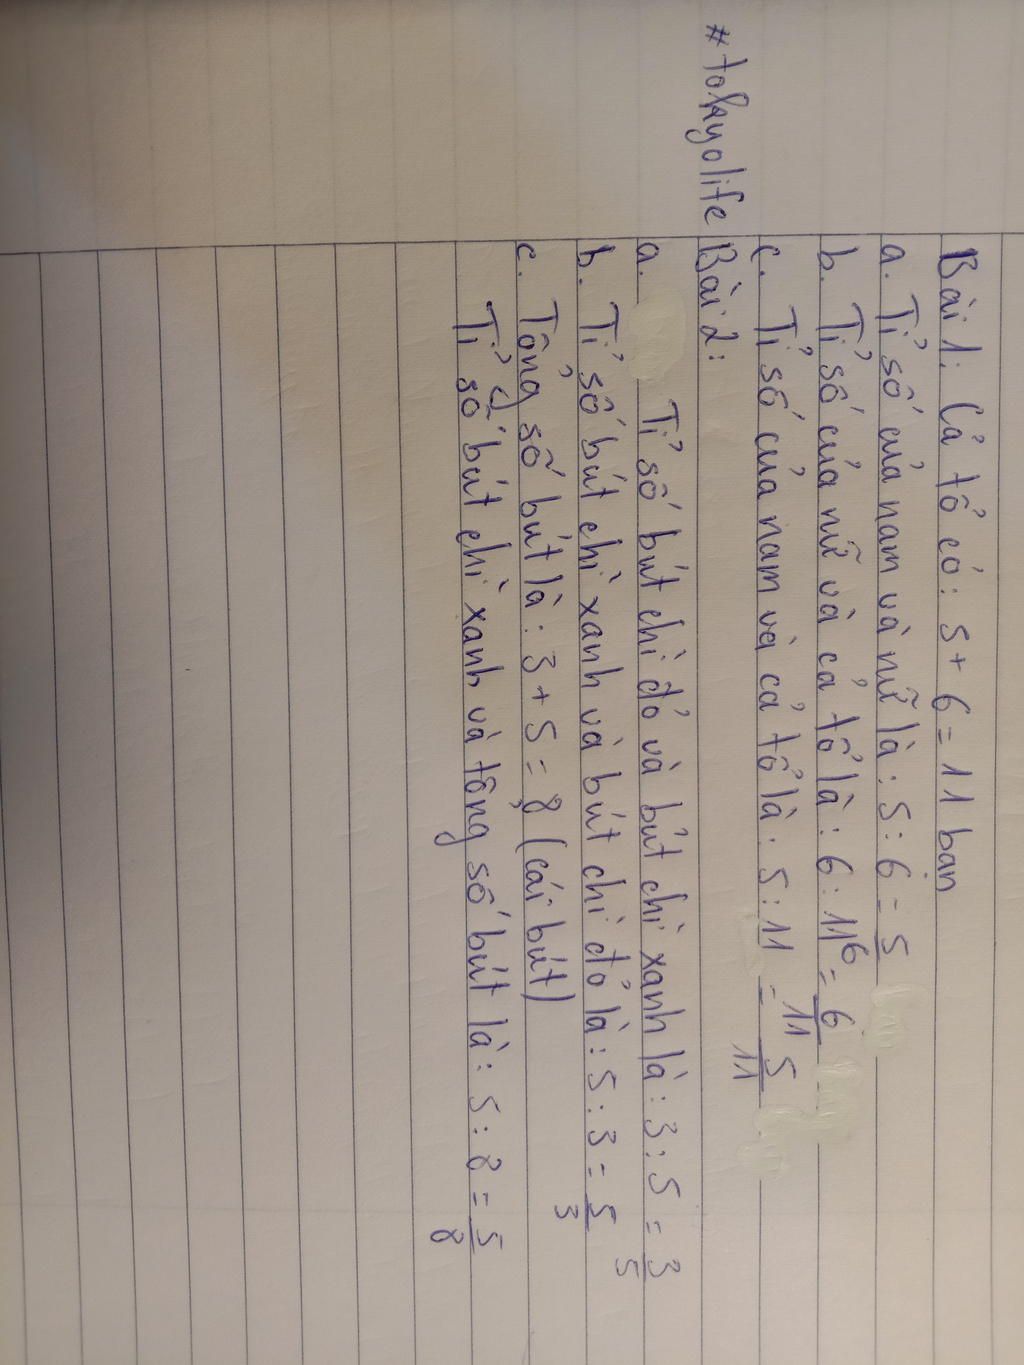 Bài 1: Cả tổ có: 5 + 6 = 11 bạn
a. Tỉ số của nam và nữ là: 5 : 6 = 5/6
b. Tỉ số của nữ và cả tổ là: 6 : 11 = 6/11
c. Tỉ số của nam và cả tổ là: 5 : 11 = 5/11
#tokyolife
Bài 2:
a. Tỉ số bút chì đỏ và bút chì xanh là: 3 : 5 = 3/5
b. Tỉ số bút chì xanh và bút chì đỏ là: 5 : 3 = 5/3
c. Tổng số bút là: 3 + 5 = 8 (cái bút)
Tỉ số bút chì xanh và tổng số bút là: 5 : 8 = 5/8